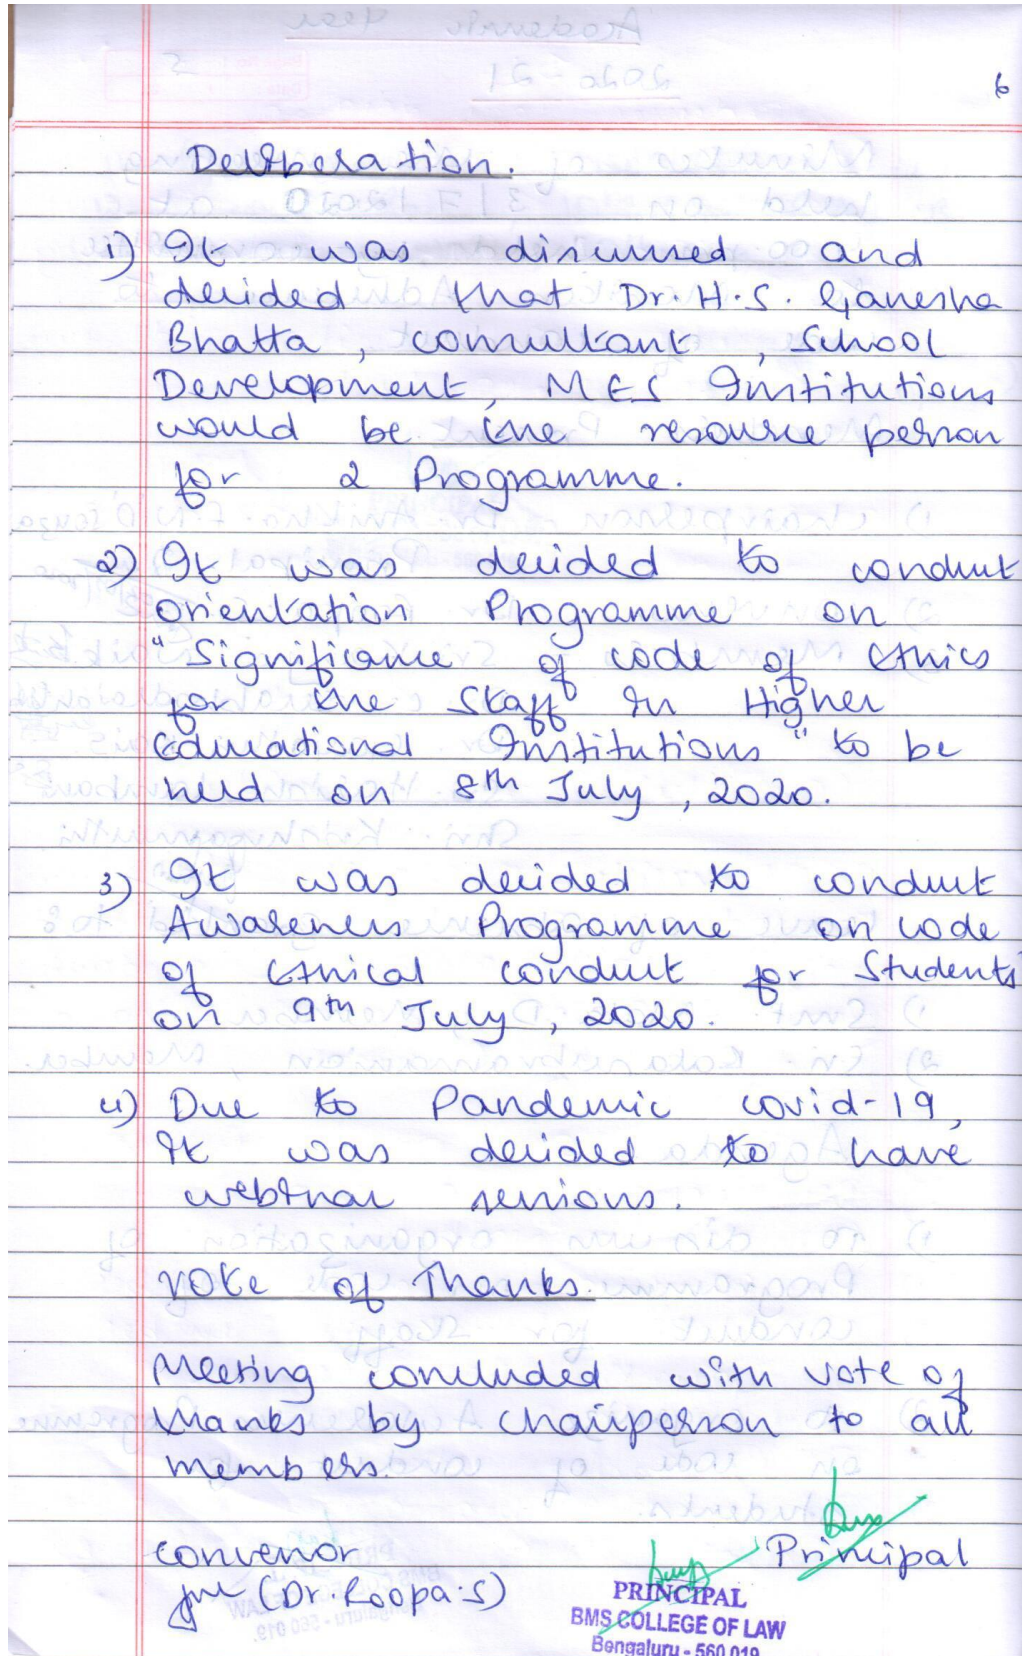 6
Deliberation.
1) It was discussed and
decided that Dr. H.S. Ganesha
Bhatta, consultant, School
Development, MES Institutions
would be the resource person
for 2 Programme.
2) It was decided to conduct
orientation Programme on
"Significance of code of Ethics
for the Staff in Higher
Educational Institutions" to be
held on 8th July, 2020.
3) It was decided to conduct
Awareness Programme on code
of Ethical conduct for Students
on 9th July, 2020.
4) Due to Pandemic covid-19,
it was decided to have
webinar sessions.
Vote of Thanks.
Meeting concluded with vote of
thanks by chairperson to all
members.
Convenor
(Dr. Roopa.S)
Principal
PRINCIPAL
BMS COLLEGE OF LAW
Bengaluru - 560 019